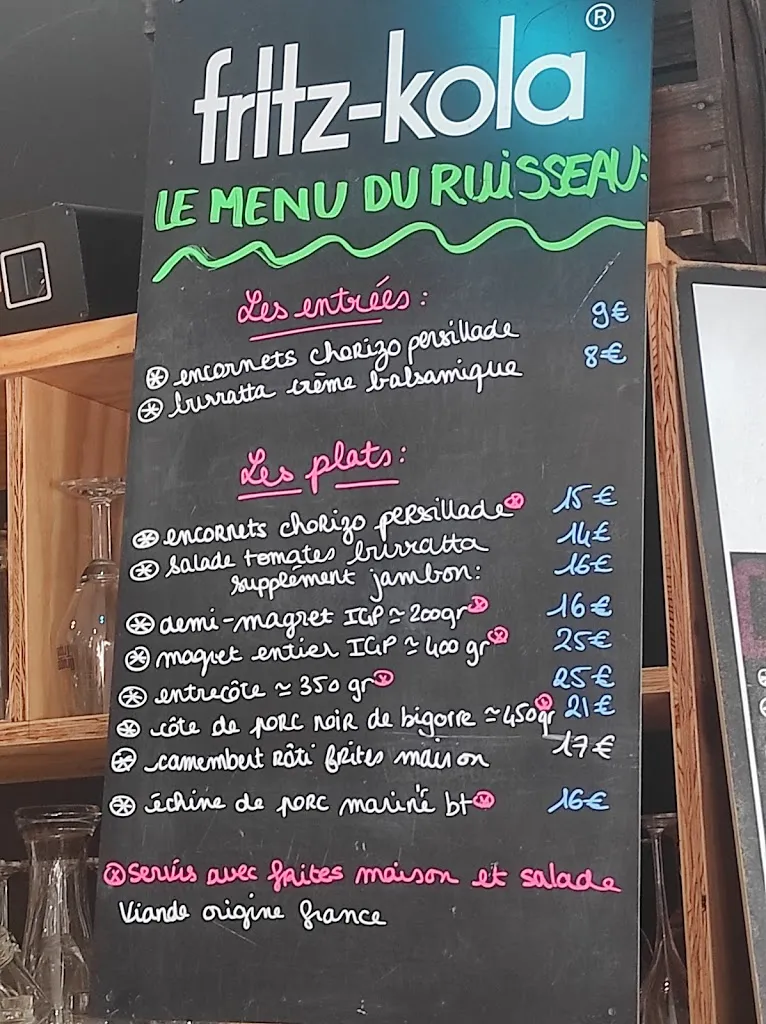 fritz-kola®
LE MENU DU RUISSEAU:
Les entrées :
encornets chorizo persillade 9€
burratta crème balsamique 8€
Les plats :
encornets chorizo persillade 15€
salade tomates burratta 14€
supplément jambon: 16€
demi-magret IGP ≃ 200gr 16€
magret entier IGP ≃ 400 gr 25€
entrecôte ≃ 350 gr 25€
côte de porc noir de bigorre ≃450gr 21€
camembert rôti frites maison 17€
échine de porc mariné bt 16€
servis avec frites maison et salade
Viande origine france